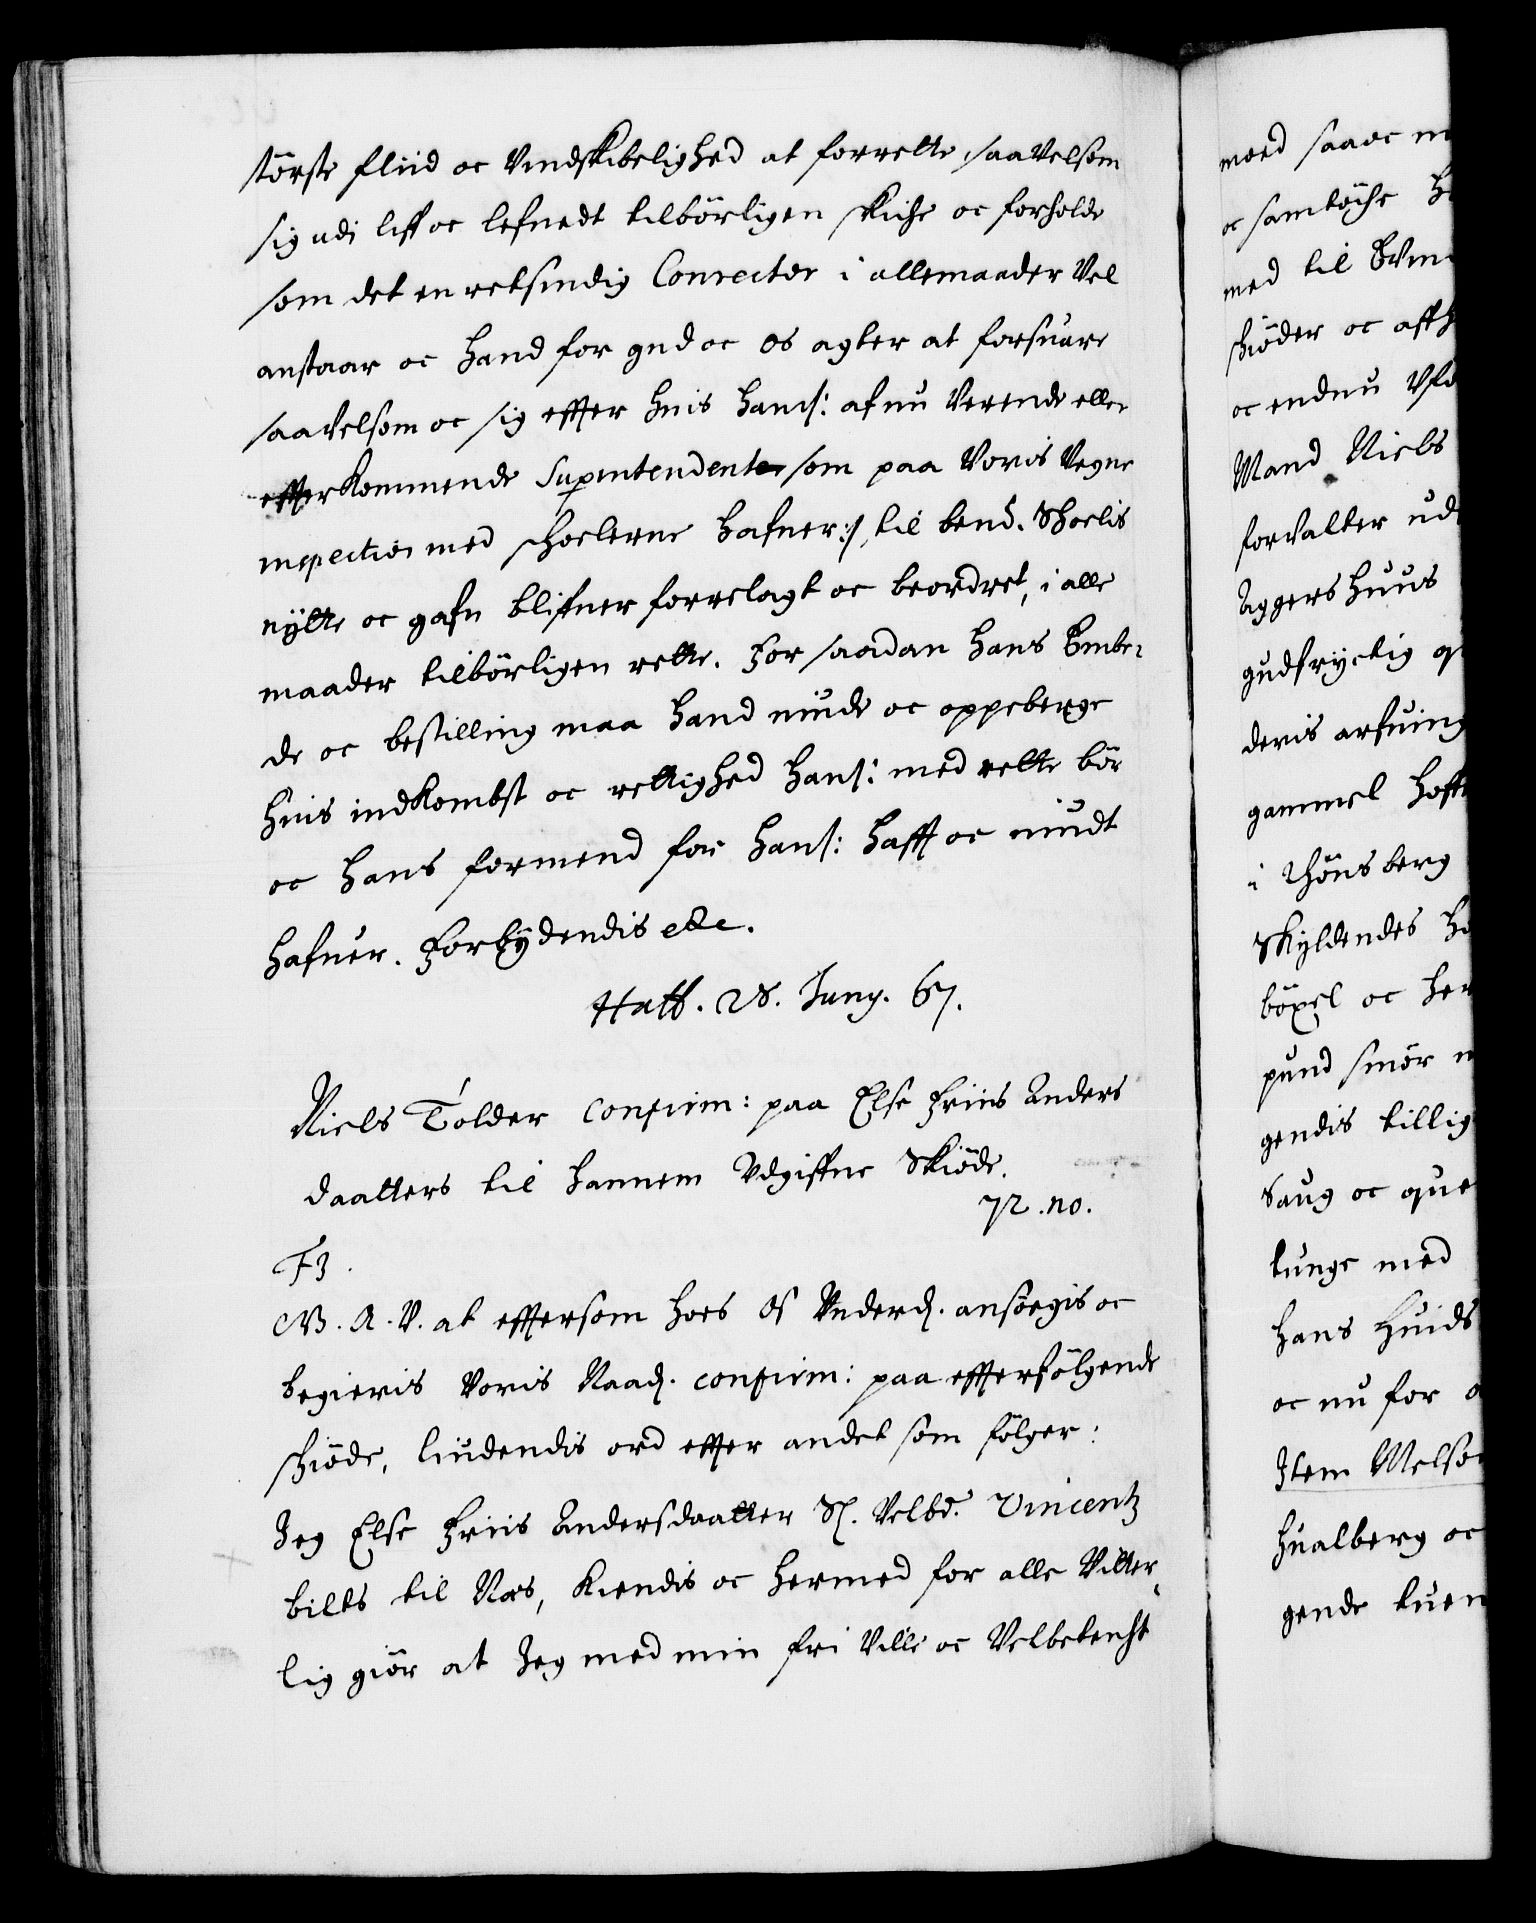 störste fliid oc Vindskibelighed at forrette, saavelsom
sig udi liff oc lefnedt tilbörligen skicke oc forholde
som det en retsindig Conrector i allemaader Vel
anstaar oc hand for gud oc os agter at forsuare
saavelsom oc sig effter huis hand: af nu Verende eller
effterkommende Superintendenter som paa Voris Vegne
inspection med scholerne hafuer :/ til bemd. Scholis
nytte oc gafn blifuer forrelagt oc beordret, i alle
maader tilbörligen rette. For saadan hans Embe-
de oc bestilling maa hand niude oc oppeberge
huis indkombst oc rettighed hand: med rette bör
oc hans formend for hand: hafft oc niudt
hafuer. Forbydendis etc.
Haff. 28. Juny. 67.
Niels Tolder confirm: paa Else Friis Anders
daatters til hannem Udgiffne Skiöde.
72. no.
F3.
G. A. V. at effersom hoes Os Underd. ansöegis oc
begieris Voris Naad. confirm: paa effterfölgende
skiöde, liudendis ord effter andet som fölger:
Jeg Else Friis Andersdaatter Sl. Velbd. Vincentz
bilts til Næs, Kiendis oc hermed for alle Vitter-
lig giör at Jeg med min fri Ville oc Velbetencht
moed saa oc
oc samtöche
med til
skiöder oc aff
oc endnu
Mand Niels
forvalter ud
Aggershuus
gudfryctig
deris arfuing
gammel
i Thönsberg
Skyldendes
böxel oc
pund smör
gendis tillig
Saug oc que
tunge med
hans Huids
oc nu for
Item Melsö
hualberg oc
gende tuen